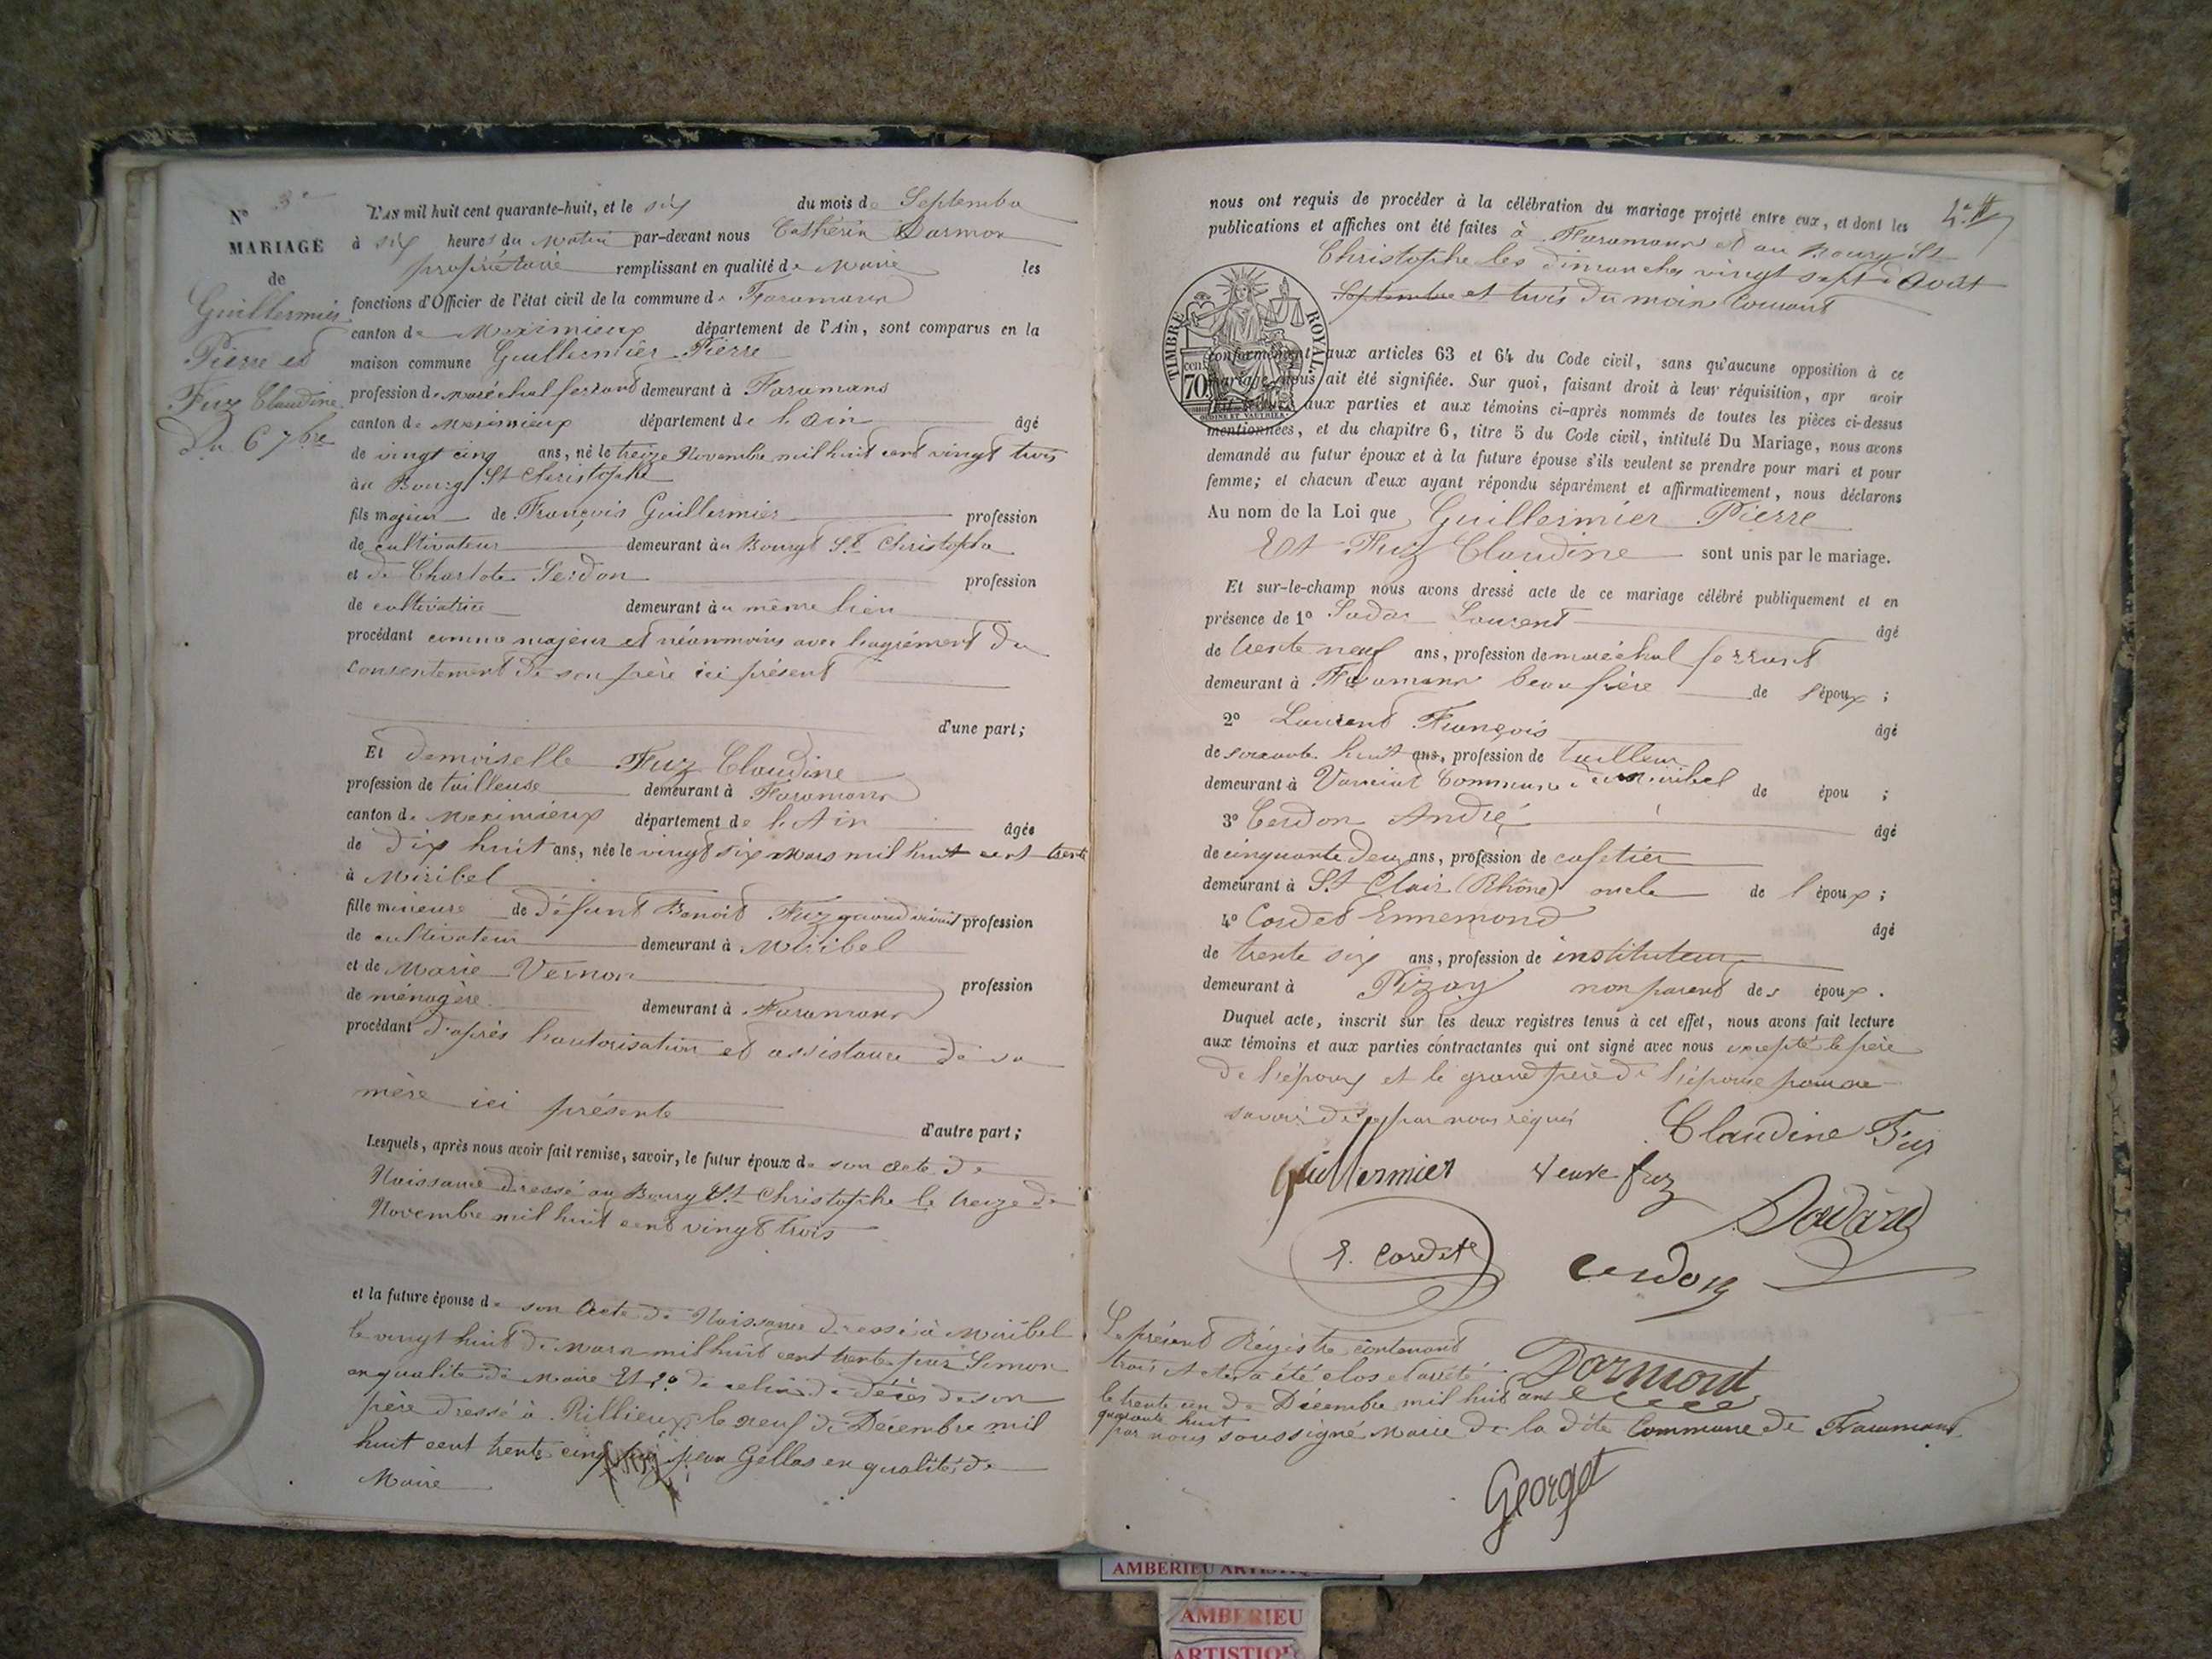 N° 3e
MARIAGE
de
Guillermier
Pierre et
Fuz Claudine
Du 6 7bre
L'AN mil huit cent quarante-huit, et le six du mois de Septembre
à six heures du Matin par-devant nous Cathérin Darmon
propriétaire remplissant en qualité de Maire les
fonctions d'Officier de l'état civil de la commune de Faramans
canton de Meximieux département de l'Ain, sont comparus en la
maison commune Guillermier Pierre
profession de maréchal ferrand demeurant à Faramans
canton de Meximieux département de l'Ain âgé
de vingt cinq ans, né le treize Novembre mil huit cent vingt trois
au Bourg St Christophe
fils majeur de François Guillermier profession
de cultivateur demeurant au Bourg St Christophe
et de Charlote Perdon profession
de cultivatrice demeurant au même lieu
procédant comme majeur et néanmoins avec l'agrément du
consentement de son père ici présent
d'une part;
Et demoiselle Fuz Claudine
profession de tailleuse demeurant à Faramans
canton de Meximieux département de l'Ain âgée
de dix huit ans, née le vingt six Mars mil huit cent trente
à Miribel
fille mineure de défunt Benoit Fuz quand vivait profession
de cultivateur demeurant à Miribel
et de Marie Vernon profession
de ménagère demeurant à Faramans
procédant d'après l'autorisation et assistance de sa
mère ici présente
d'autre part;
Lesquels, après nous avoir fait remise, savoir, le futur époux de son acte de
Naissance dressé au Bourg St Christophe le treize de
Novembre mil huit cent vingt trois
et la future épouse de son Acte de Naissance dressé à Miribel
le vingt huit de Mars mil huit cent trente par Simon
en qualité de Maire Et 2° de celui de décès de son
père dressé à Rillieux le neuf de Décembre mil
huit cent trente cinq par jean Gellas en qualité de
Maire
nous ont requis de procéder à la célébration du mariage projeté entre eux, et dont les
publications et affiches ont été faites à Faramans et au Bourg St
Christophe les dimanches vingt sept d'Août
Septembre et trois du mois Courant
TIMBRE ROYAL
70 cen.
OUDINÉ ET VAUTHIER
conformément aux articles 63 et 64 du Code civil, sans qu'aucune opposition à ce
mariage nous ait été signifiée. Sur quoi, faisant droit à leur réquisition, apr avoir
fait lecture aux parties et aux témoins ci-après nommés de toutes les pièces ci-dessus
mentionnées, et du chapitre 6, titre 5 du Code civil, intitulé Du Mariage, nous avons
demandé au futur époux et à la future épouse s'ils veulent se prendre pour mari et pour
femme; et chacun d'eux ayant répondu séparément et affirmativement, nous déclarons
Au nom de la Loi que Guillermier Pierre
Et Fuz Claudine sont unis par le mariage.
Et sur-le-champ nous avons dressé acte de ce mariage célébré publiquement et en
présence de 1° Laurent âgé
de trente neuf ans, profession de maréchal ferrant
demeurant à Faramans beau frère de l'époux;
2° Laurent François âgé
de soixante huit ans, profession de tailleur
demeurant à Commune de Miribel de épou ;
3° Cerdon André âgé
de cinquante deux ans, profession de cafetier
demeurant à St Clair (Rhône) oncle de l'époux;
4° Cordet Ennemond âgé
de trente six ans, profession de instituteur
demeurant à Pizay non parent des époux.
Duquel acte, inscrit sur les deux registres tenus à cet effet, nous avons fait lecture
aux témoins et aux parties contractantes qui ont signé avec nous excepté le père
de l'époux et le grand père de l'épouse pour ne
savoir de ce par nous réquis
Claudine Fuz
Guillermier Veuve fuz
E. Cordet cerdon
Le présent Régistre contenant
trois Actes a été clos et arrêté Darmont
le trente un de Décembre mil huit cent
quarante huit
par nous soussigné Maire de la dite Commune de Faramans
Georget
AMBERIEU
AMBERIEU
ARTISTIQUE